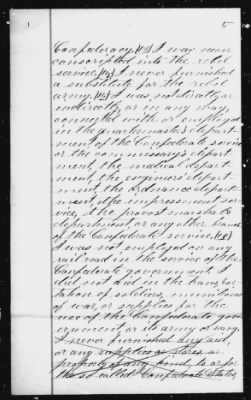 5
Confederacy. (12) I was never
conscripted into the rebel
service. (13) I never furnished
a substitute for the rebel
army. (14) I was not directly or
indirectly or in any way,
connected with or employed
in the quartermasters depart-
ment of the Confederate service
or the commissary's depart-
ment, the medical depart-
ment, the engineers' depart-
ment, the ordnance depart-
ment, the impressment ser-
vice, the provost marshal's
department, or any other branch
of the Confederate service.
I was not employed on any
railroad in the service of the
Confederate government. I
did not aid in the transpor-
tation of soldiers, munitions
of war, or supplies for the
use of the Confederate gov-
ernment or its army or navy.
I never furnished any aid,
or any supplies or stores or
property of any kind, to or for
the so called Confederate States